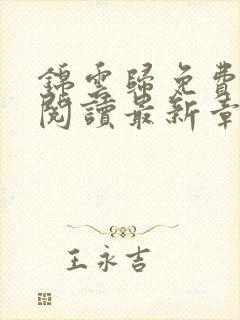 錦雲歸免費
閱讀最新章
王永吉